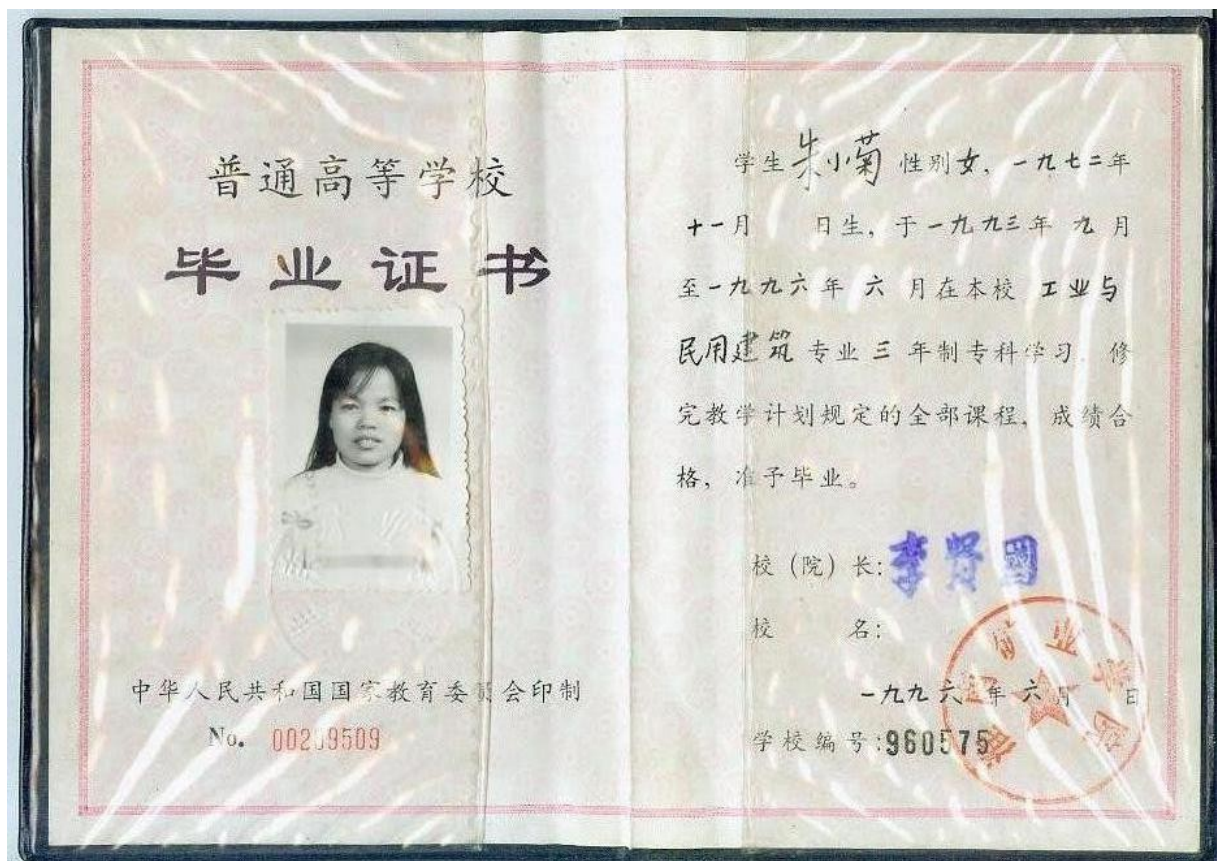 普通高等学校
毕业证书
中华人民共和国国家教育委员会印制
No. 00209509
学生朱小菊 性别女，一九七二年
十一月 日生，于一九九三年 九月
至一九九六年 六 月在本校 工业与
民用建筑 专业 三 年制专科学习 修
完教学计划规定的全部课程，成绩合
格，准予毕业。
校（院）长：李贤国
校 名：
一九九六年六月 日
学校编号：960575